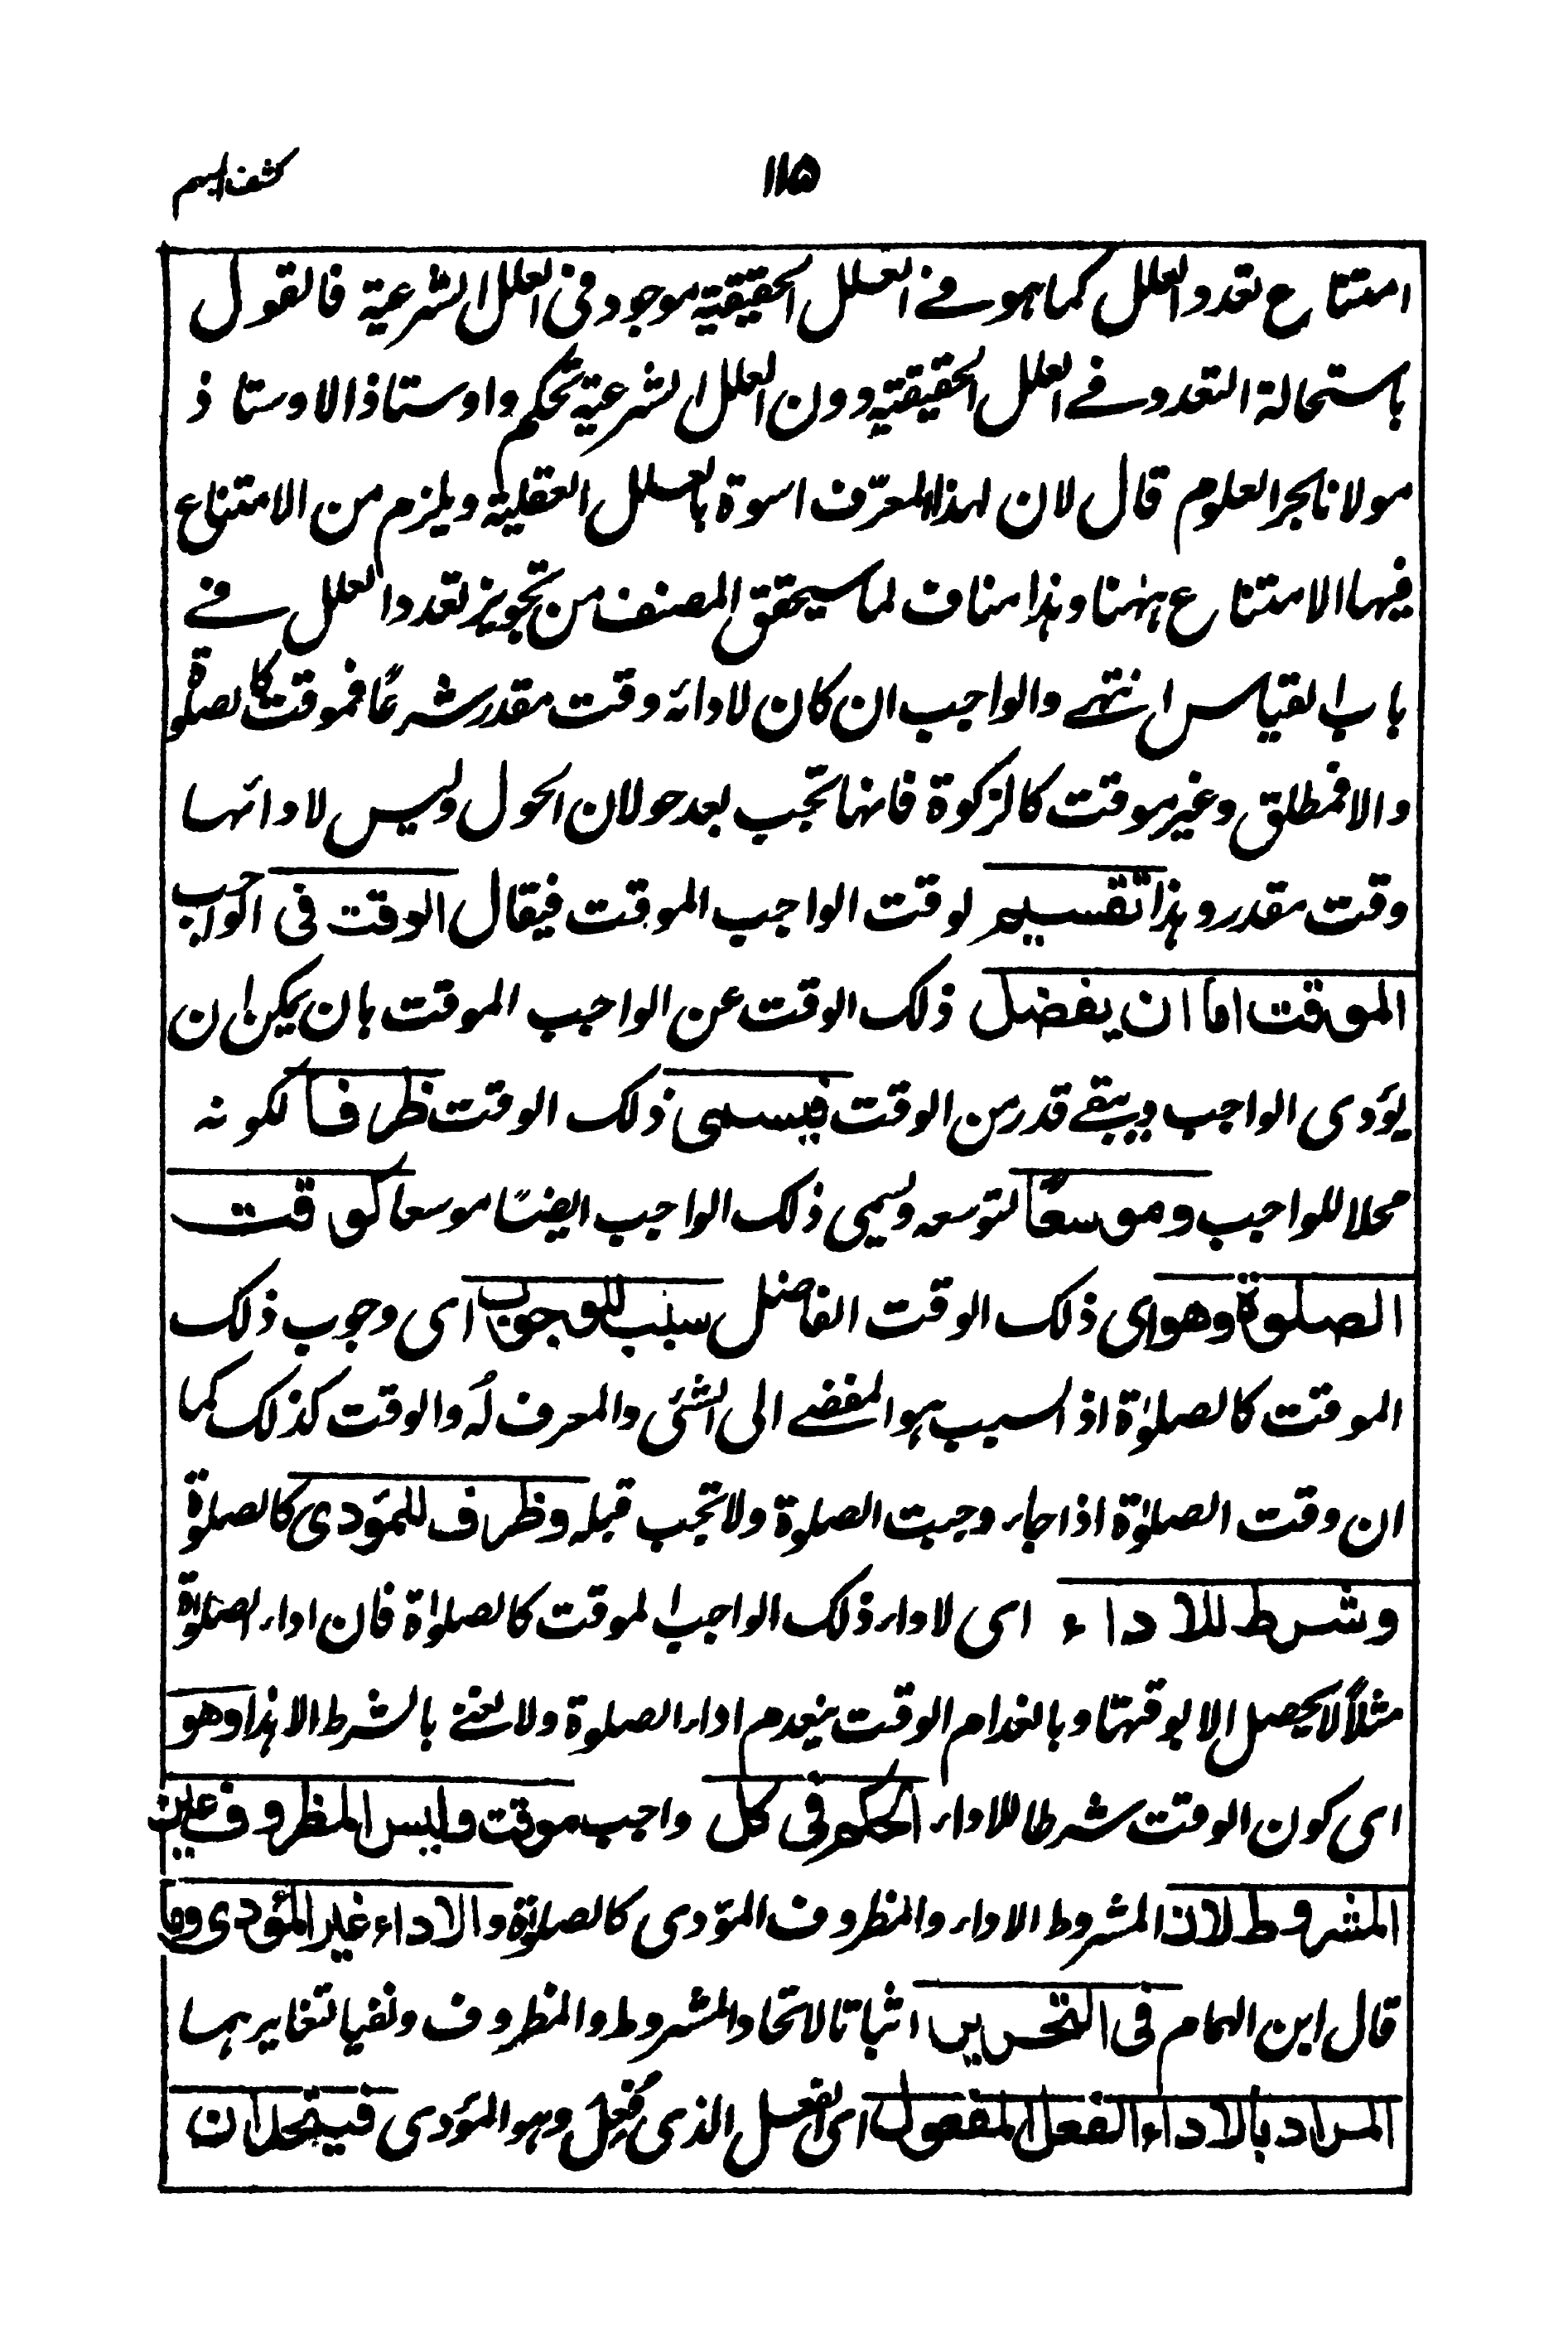 كشف المبهم
١١٥
امتناع تعدد العلل كما هو في العلل الحقيقية موجود في العلل الشرعية فالقول
باستحالة التعدد في العلل الحقيقية دون العلل الشرعية تحكم واوستاذ الاوستاذ
مولانا بحر العلوم قال لان لهذا المعرّف اسوة بالعلل العقلية ويلزم من الامتناع
فيها الامتناع ههنا وهذا مناف لما سيحقق المصنف من تجويز تعدد العلل في
باب القياس انتهے والواجب ان كان لادائه وقت مقدر شرعًا فموقت كالصلوة
والا فمطلق وغير موقت كالزكوة فانها تجب بعد حولان الحول وليس لادائها
وقت مقدر وهذا تقسيم لوقت الواجب الموقت فيقال الوقت فى الواجب
الموقت اما ان يفضل ذلك الوقت عن الواجب الموقت بان يمكن ان
يؤدى الواجب ويبقے قدر من الوقت فيسمى ذلك الوقت ظرفا لكونه
محلا للواجب وموسعًا لتوسعه ويسمى ذلك الواجب ايضًا موسعا كوقت
الصلوة وهو اى ذلك الوقت الفاضل سبب للوجوب اى وجوب ذلك
الموقت كالصلوٰة اذ السبب هو المفضے الى الشئ والمعرف لهُ والوقت كذلك كما
ان وقت الصلوٰة اذا جاء وجبت الصلوة ولا تجب قبله وظرف للمؤدى كالصلوٰة
وشرط للاداء اى لاداء ذلك الواجب الموقت كالصلوٰة فان اداء الصلوٰة
مثلاً لا يحصل الا بوقتها وبانعدام الوقت ينعدم اداء الصلوة ولا نعنے بالشرط الا هذا وهو
اى كون الوقت شرطا للاداء الحكم فى كل واجب موقت وليس المظروف عين
المشروط لان المشروط الاداء والمظروف المؤدى كالصلوٰة والاداء غير المؤدى وما
قال ابن الهمام فى التحرير اثباتا لاتحاد المشروط والمظروف ونفيا لتغايرهما
المراد بالاداء الفعل المفعول اى الفعل الذى فُعِل وهو المؤدى فيتحدان